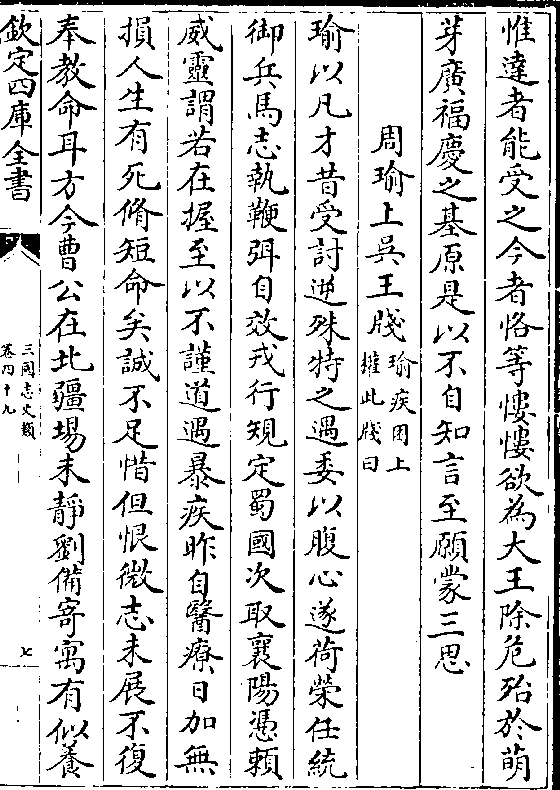 惟達者能受之今者恪等悽悽欲為大王除危殆於萌
芽廣福慶之基原是以不自知言至願蒙三思
周瑜上吳王牋瑜疾困上
權此牋曰
瑜以凡才昔受討逆殊特之遇委以腹心遂荷榮任統
御兵馬志執鞭弭自效戎行規定蜀國次取襄陽憑賴
威靈謂若在握至以不謹道遇暴疾昨自醫療日加無
損人生有死脩短命矣誠不足惜但恨微志未展不復
奉教命耳方今曹公在北疆埸未靜劉備寄寓有似養
欽定四庫全書
三國志文類
卷四十九
七